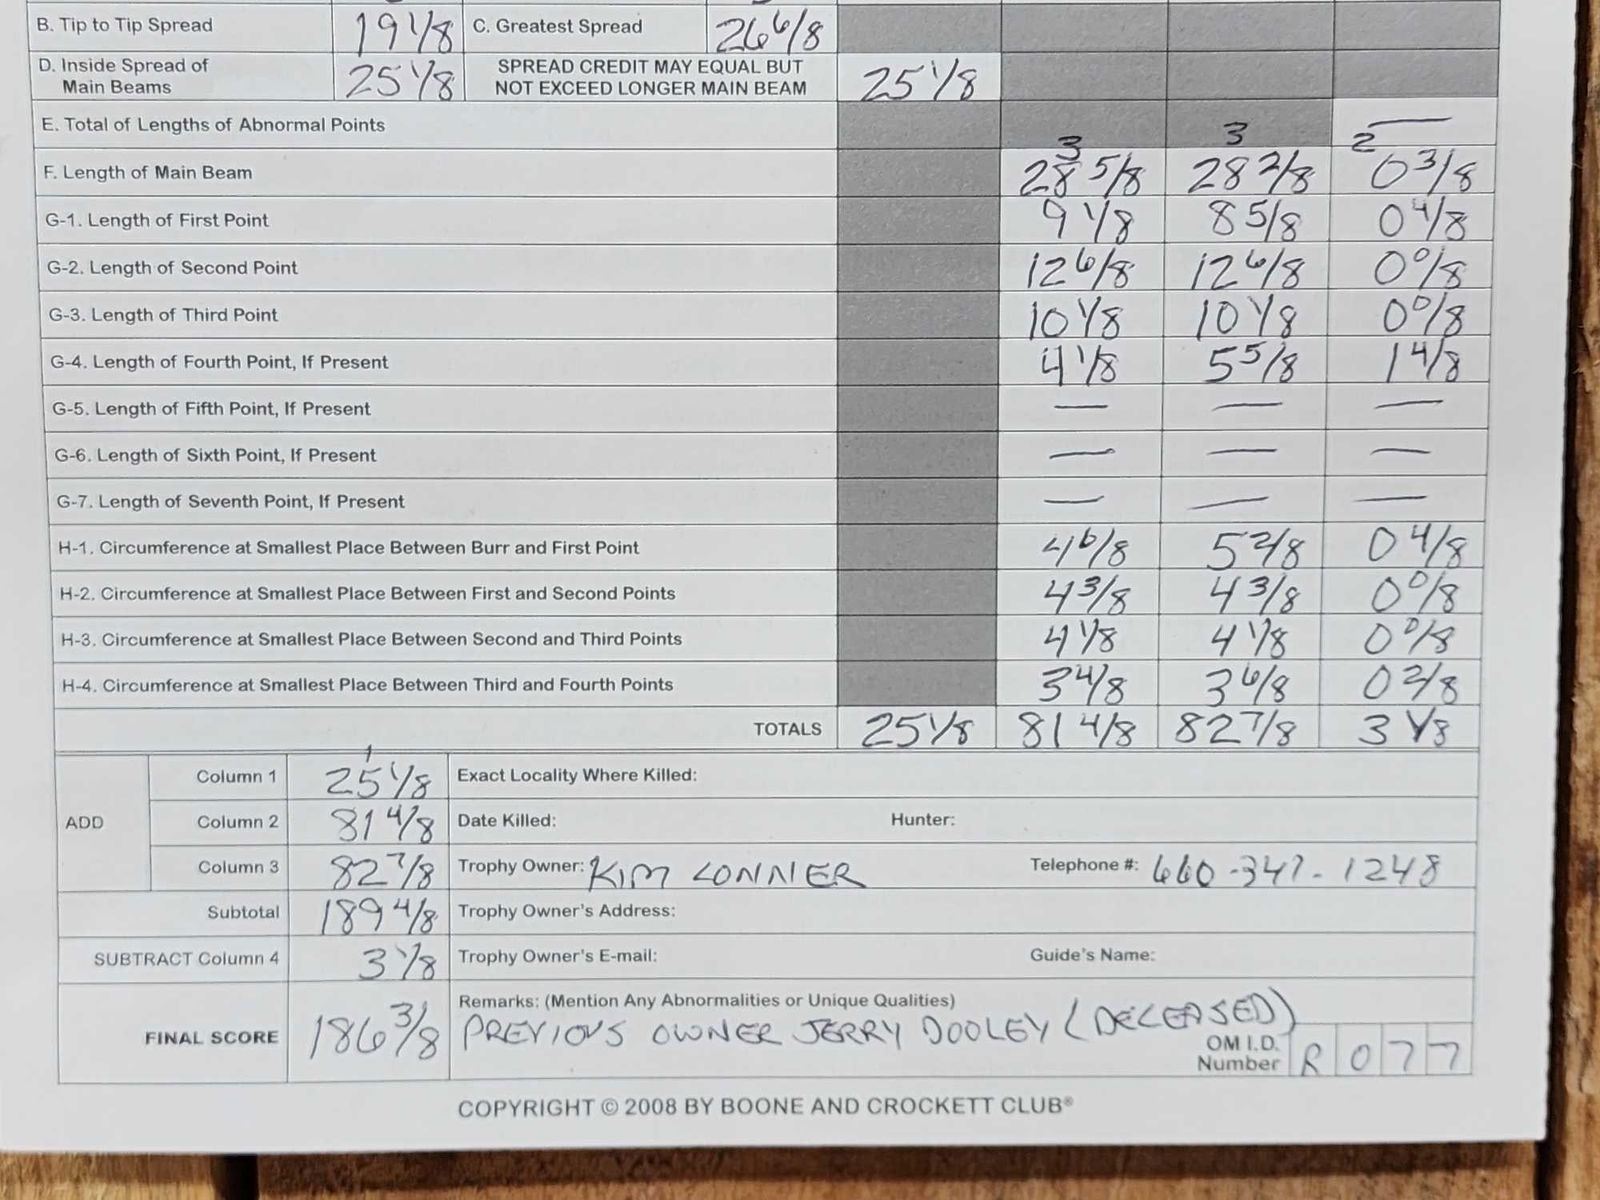 B. Tip to Tip Spread 19 1/8 C. Greatest Spread 26 6/8
D. Inside Spread of Main Beams 25 1/8 SPREAD CREDIT MAY EQUAL BUT NOT EXCEED LONGER MAIN BEAM 25 1/8
E. Total of Lengths of Abnormal Points —
3 3 2
F. Length of Main Beam 28 5/8 28 2/8 0 3/8
G-1. Length of First Point 9 1/8 8 5/8 0 4/8
G-2. Length of Second Point 12 6/8 12 6/8 0 0/8
G-3. Length of Third Point 10 1/8 10 1/8 0 0/8
G-4. Length of Fourth Point, If Present 4 1/8 5 5/8 1 4/8
G-5. Length of Fifth Point, If Present — — —
G-6. Length of Sixth Point, If Present — — —
G-7. Length of Seventh Point, If Present — — —
H-1. Circumference at Smallest Place Between Burr and First Point 4 6/8 5 2/8 0 4/8
H-2. Circumference at Smallest Place Between First and Second Points 4 3/8 4 3/8 0 0/8
H-3. Circumference at Smallest Place Between Second and Third Points 4 1/8 4 1/8 0 0/8
H-4. Circumference at Smallest Place Between Third and Fourth Points 3 4/8 3 6/8 0 2/8
TOTALS 25 1/8 81 4/8 82 7/8 3 1/8
1
ADD Column 1 25 1/8 Exact Locality Where Killed:
Column 2 81 4/8 Date Killed: Hunter:
Column 3 82 7/8 Trophy Owner: KIM CONNER Telephone #: 660-347-1248
Subtotal 189 4/8 Trophy Owner's Address:
SUBTRACT Column 4 3 1/8 Trophy Owner's E-mail: Guide's Name:
Remarks: (Mention Any Abnormalities or Unique Qualities)
FINAL SCORE 186 3/8 PREVIOUS OWNER JERRY DOOLEY (DECEASED)
OM I.D. Number R 0 7 7
COPYRIGHT © 2008 BY BOONE AND CROCKETT CLUB®